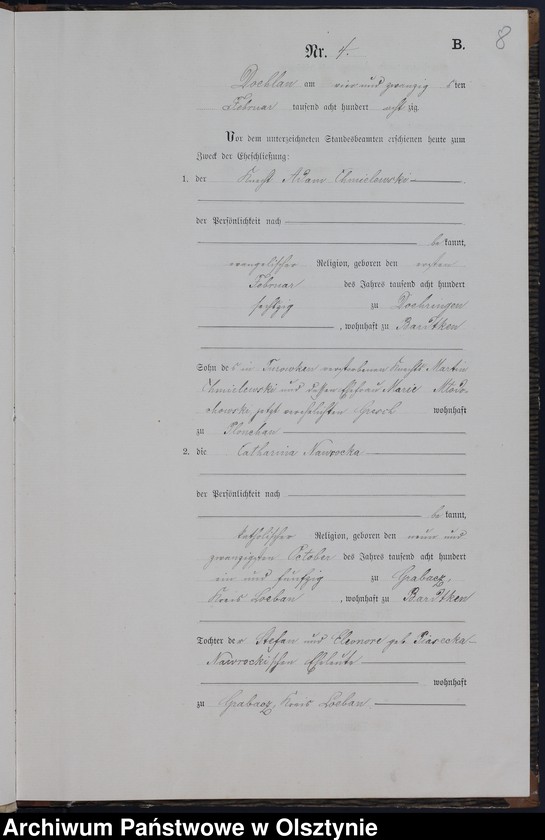 8
B.
Nr. 4.
Doehlau am vier und zwanzig sten
Februar tausend acht hundert acht zig
Vor dem unterzeichneten Standesbeamten erschienen heute zum
Zweck der Eheschließung:
1. der Knecht Adam Chmielewski
der Persönlichkeit nach
be kannt,
evangelischer Religion, geboren den ersten
Februar des Jahres tausend acht hundert
sechszig zu Doehringen
, wohnhaft zu Bardtken
Sohn des in verstorbenen Knechts Martin
Chmielewski und dessen Ehefrau Marie Mlodo-
chowski jetzt verehelichten wohnhaft
zu
2. die Catharina Nawrocka
der Persönlichkeit nach
be kannt,
katholischer Religion, geboren den neun und
zwanzigsten October des Jahres tausend acht hundert
ein und fünfzig zu Grabacz,
Kreis Loebau , wohnhaft zu Bardtken
Tochter der Stefan und Eleonore geb Piasecka-
Nawrockischen Eheleute
wohnhaft
zu Grabacz, Kreis Loebau.
Archiwum Państwowe w Olsztynie
szukajwarchiwach.gov.pl